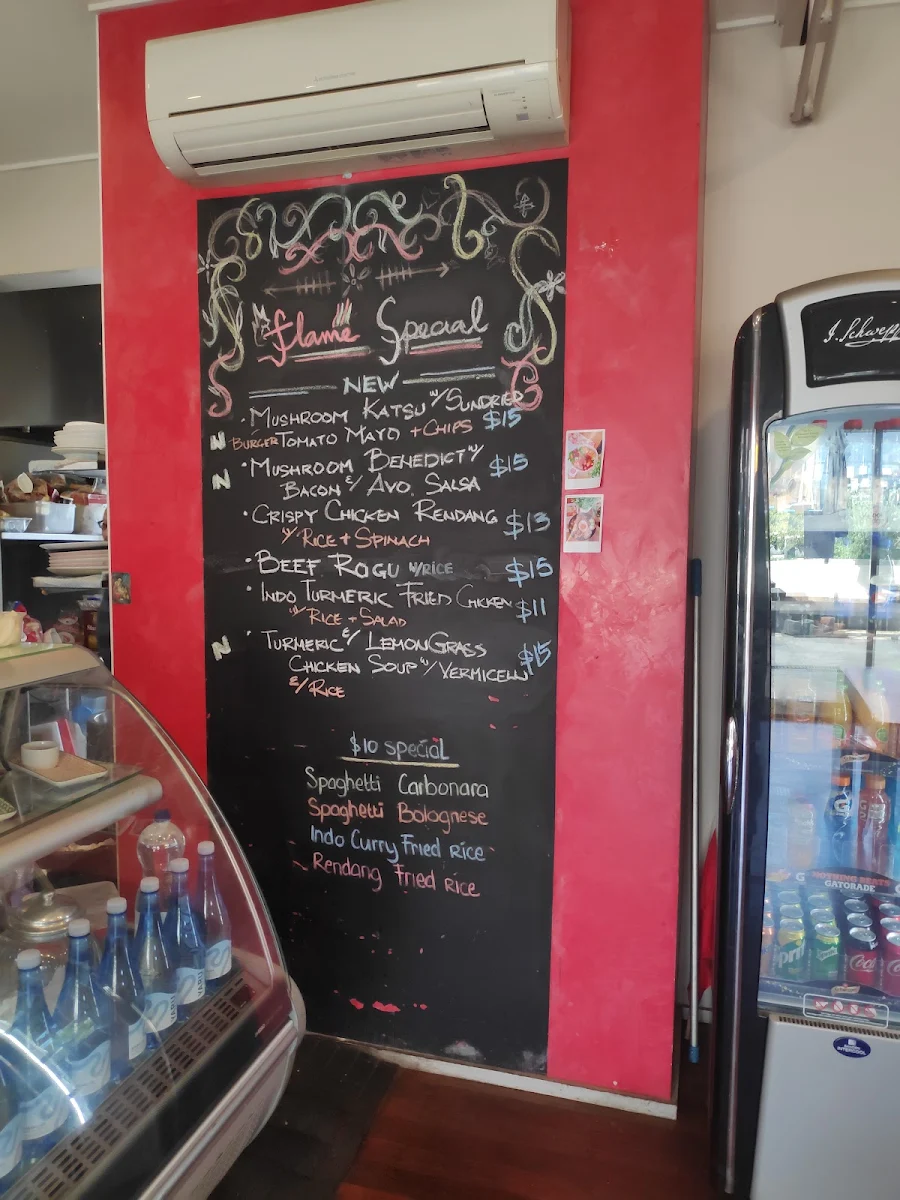 Flame Special
NEW
• MUSHROOM KATSU w/ SUNDRIED
N BURGER TOMATO MAYO + CHIPS $15
N • MUSHROOM BENEDICT w/ $15
BACON &/ AVO. SALSA
• CRISPY CHICKEN RENDANG $13
w/ RICE + SPINACH
• BEEF ROGU w/ RICE $15
• INDO TURMERIC FRIED CHICKEN $11
w/ RICE + SALAD
N • TURMERIC &/ LEMONGRASS $15
CHICKEN SOUP w/ VERMICELLI
&/ RICE
$10 special
Spaghetti Carbonara
Spaghetti Bolognese
Indo Curry Fried rice
Rendang Fried rice
J. Schwepp
NOTHING BEATS
GATORADE